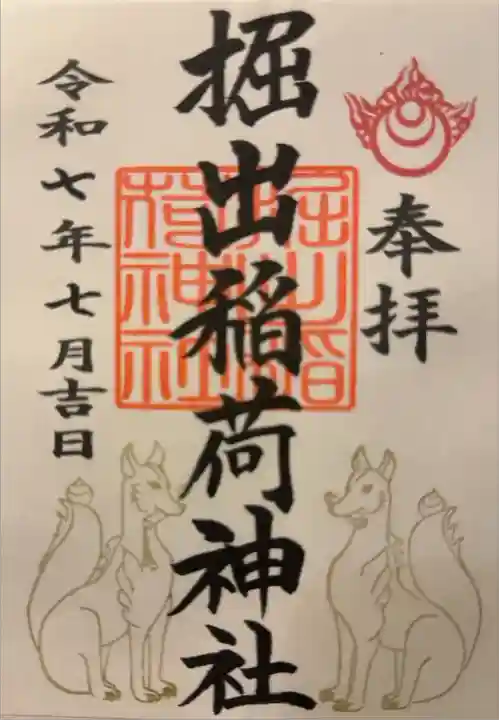 奉拝
掘出稲荷神社
令和七年七月吉日